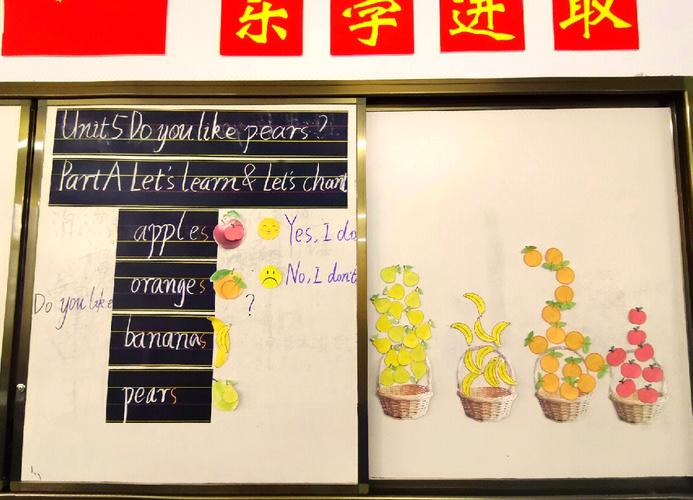 乐 学 进 取
Unit5 Do you like pears?
Part A Let's learn & Let's chant
apples
Yes, I do
oranges
No, I don't
Do you like
?
bananas
pears